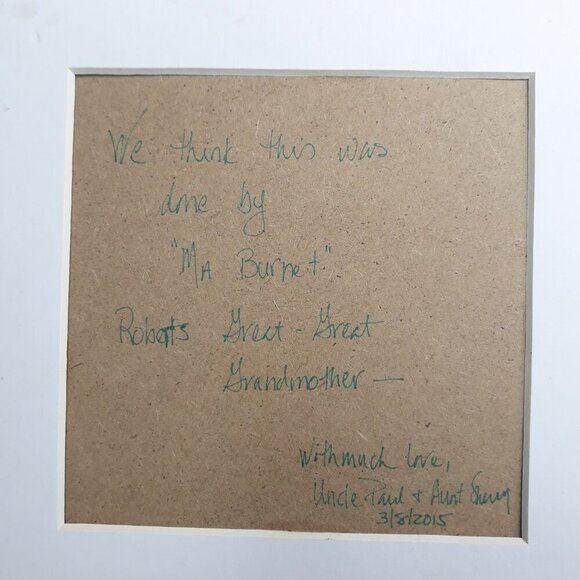 We think this was
done by
"MA Burnet"
Roberts Great-Great
Grandmother —
With much love,
Uncle Paul & Aunt Sherry
3/8/2015